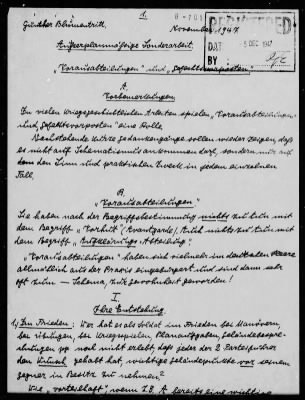 1.
B-701
REGISTERED
Günther Blumentritt
November 1947
DAT 5 DEC 1947
BY:
Außerplanmäßige Sonderarbeit
„Vorausabteilungen" und „Gefechtsvorposten"
A.
Vorbemerkungen
In vielen kriegsgeschichtlichen Arbeiten spielen „Vorausabteilungen"
und „Gefechtsvorposten" eine Rolle.
Nachstehende kurze Gedankengänge sollen zeigen, daß
es nicht auf Schematismus ankommen darf, sondern nur auf
den Sinn und praktischen Zweck in jedem einzelnen
Fall.
B.
„Vorausabteilungen"
Sie haben nach der Begriffsbestimmung nichts zu tun mit
dem Begriff „Vorhut" (Avantgarde). Auch nichts zu tun mit
dem Begriff „Aufklärungs Abteilung".
„Vorausabteilungen" haben sich vielmehr im deutschen Heere
allmählich aus der Praxis eingebürgert und sind dann sehr
oft zum Schema, zur Gewohnheit geworden!
I.
Ihre Entstehung.
1.) Im Frieden: Wer hat es als Soldat im Frieden bei Manövern
bei Übungen bei Kriegsspielen, Planaufgaben, Geländebespre-
chungen pp noch nicht erlebt, daß jeder der 2 Parteiführer
den Wunsch gehabt hat, wichtige Geländepunkte vor seinem
Gegner in Besitz zu nehmen?
Wie „vorteilhaft", wenn z.B. A bereits eine wichtig